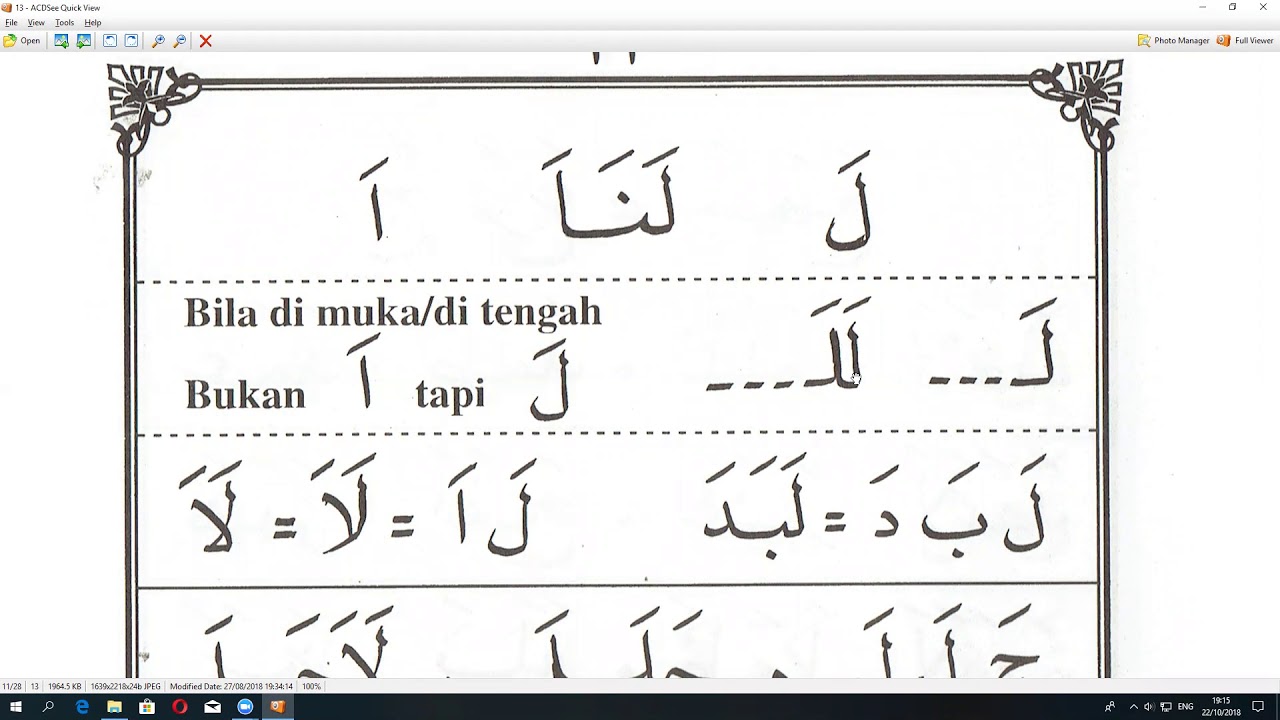 13 - ACDSee Quick View
File View Tools Help
Open Photo Manager Full Viewer
لَ لَنَاَ اَ
Bila di muka/di tengah
لَـ--- لَلَـ---
Bukan اَ tapi لَ
لَ بَ دَ = لَبَدَ
لَ اَ = لَاَ = لَاَ
11/28 13 1964.5 KB 1639x2218x24b JPEG Modified Date: 27/08/2018 19:34:14 100%
ENG 19:15
22/10/2018